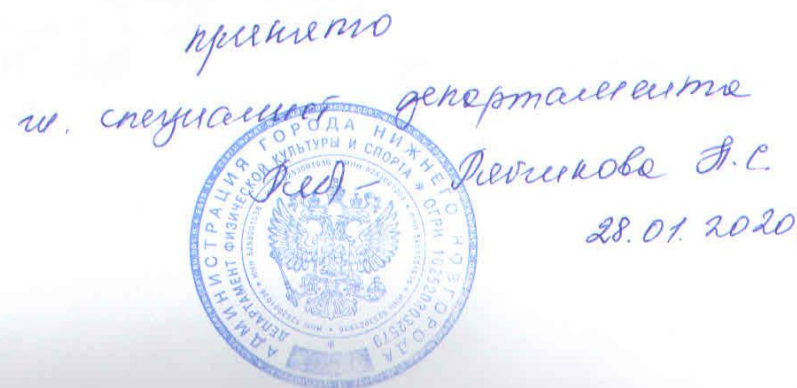 принято
гл. специалист департамента
Рябчикова А.С.
28.01.2020
АДМИНИСТРАЦИЯ ГОРОДА НИЖНЕГО НОВГОРОДА
ДЕПАРТАМЕНТ ФИЗИЧЕСКОЙ КУЛЬТУРЫ И СПОРТА * ОГРН 1025203032579